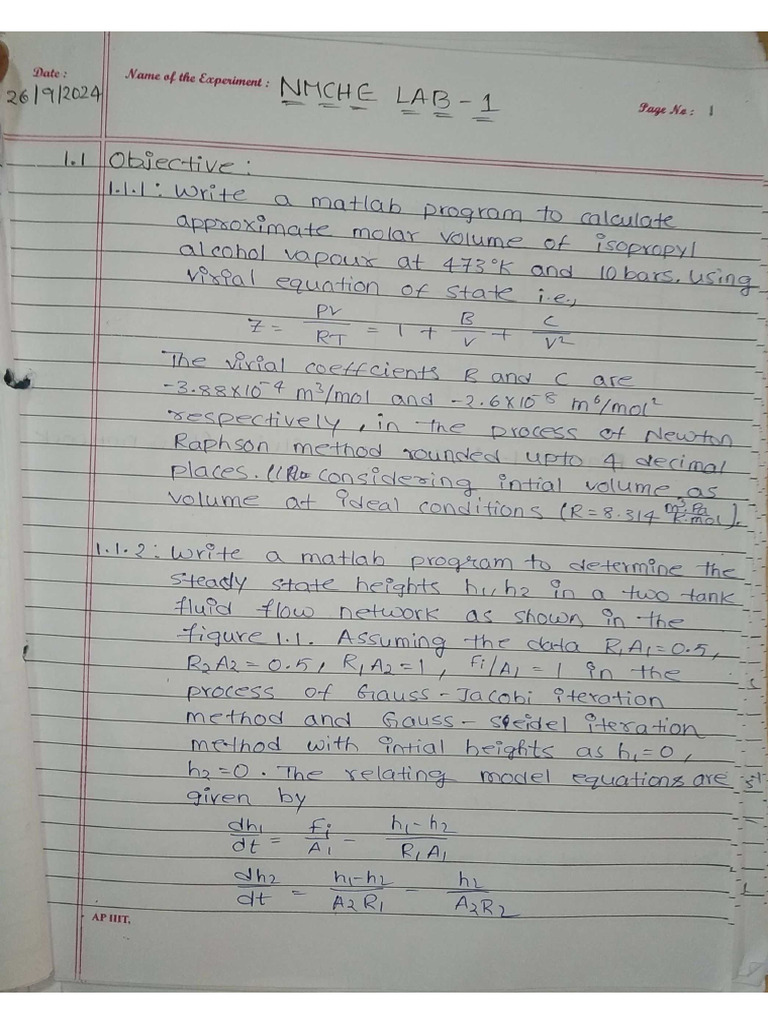 Date :
26/9/2024
Name of the Experiment : NMCHE LAB - 1
Page No : 1
1.1 Objective :
1.1.1 : Write a matlab program to calculate
approximate molar volume of isopropyl
alcohol vapour at 473°K and 10 bars. Using
virial equation of state i.e.,
Z = PV/RT = 1 + B/V + C/V²
The virial coeffcients B and C are
-3.88×10⁻⁴ m³/mol and -2.6×10⁻⁸ m⁶/mol²
respectively, in the process of Newton
Raphson method rounded upto 4 decimal
places. considering intial volume as
volume at ideal conditions (R = 8.314 m³.Pa/K.mol).
1.1.2 : Write a matlab program to determine the
steady state heights h₁, h₂ in a two tank
fluid flow network as shown in the
figure 1.1. Assuming the data R₁A₁ = 0.5,
R₂A₂ = 0.5, R₁A₂ = 1, Fi/A₁ = 1 in the
process of Gauss - Jacobi iteration
method and Gauss - Seidel iteration
method with intial heights as h₁ = 0,
h₂ = 0. The relating model equations are
given by
dh₁/dt = Fi/A₁ - h₁-h₂/R₁A₁
dh₂/dt = h₁-h₂/A₂R₁ - h₂/A₂R₂
AP IIIT,